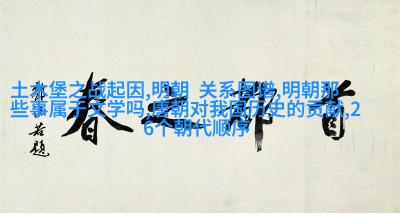 土木堡之战起因,明朝 关系图谱,明朝那
些事属于文学吗,唐朝对我国历史的贡献,2
6个朝代顺序
首都之春
若题